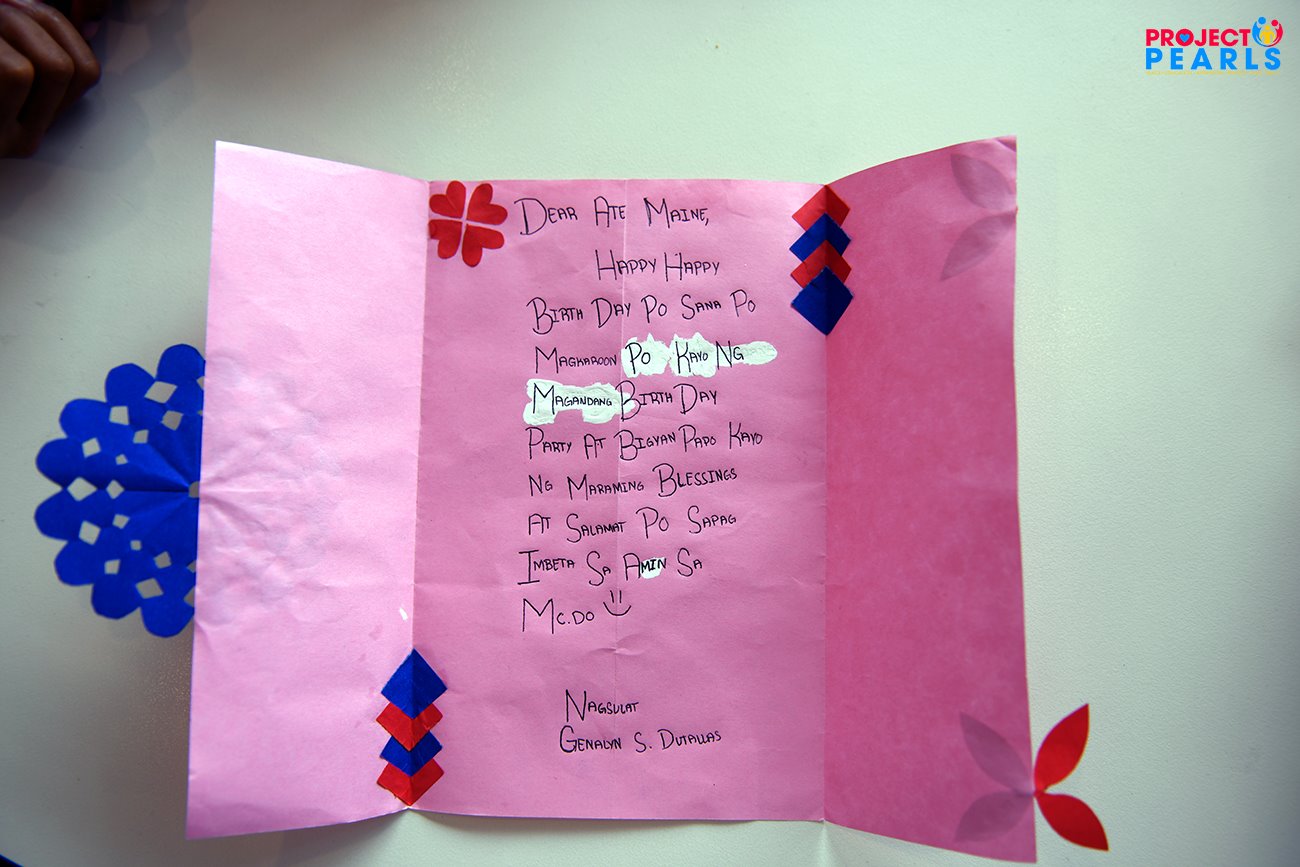 PROJECT
PEARLS
DEAR ATE MAINE,
HAPPY HAPPY
BIRTH DAY PO SANA PO
MAGKAROON PO KAYO NG
MAGANDANG BIRTH DAY
PARTY AT BIGYAN PAPO KAYO
NG MARAMING BLESSINGS
AT SALAMAT PO SAPAG
IMBETA SA AMIN SA
MC.DO
NAGSULAT
GENALYN S. DUTALLAS